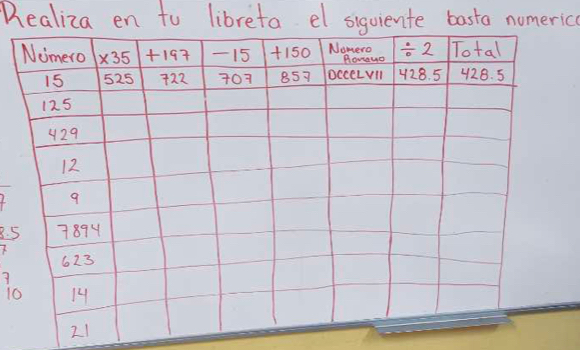 Realiza en tu libreta el siguiente basta numerico
Número x35 +197 -15 +150 Número Romano ÷2 Total
15 525 722 707 857 DCCCLVII 428.5 428.5
125
429
12
9
7894
623
14
21
8.5
7
7
10